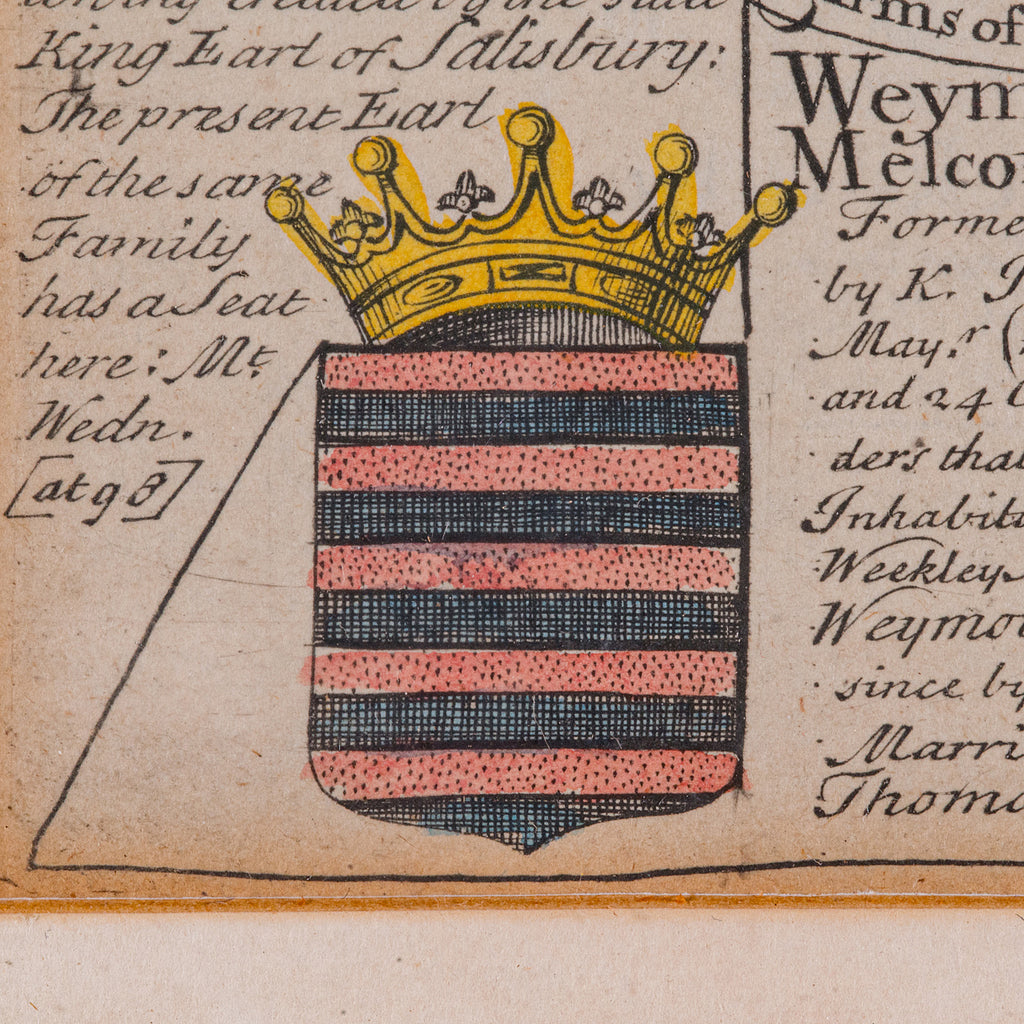 King Earl of Salisbury:
The present Earl
of the same
Family
has a Seat
here: Mt.
Wedn.
[at 98]
Arms of
Weym
Melco
Forme
by K.
May.r
and 24
ders tha
Inhabit
Weekley
Weymo
since by
Marri
Thoma